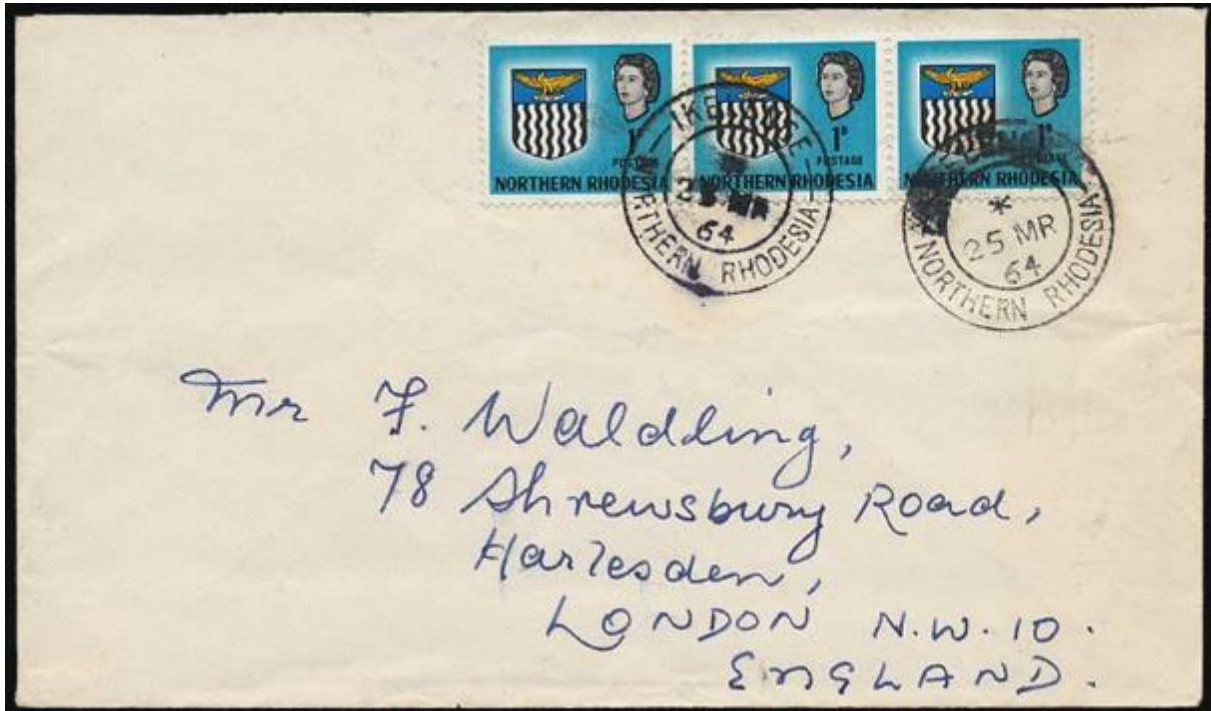 1ᴰ
POSTAGE
NORTHERN RHODESIA
1ᴰ
POSTAGE
NORTHERN RHODESIA
1ᴰ
POSTAGE
NORTHERN RHODESIA
MR
64
NORTHERN RHODESIA
25 MR
64
NORTHERN RHODESIA
Mr F. Waldling,
78 Shrewsbury Road,
Harlesden,
LONDON N.W.10.
ENGLAND.